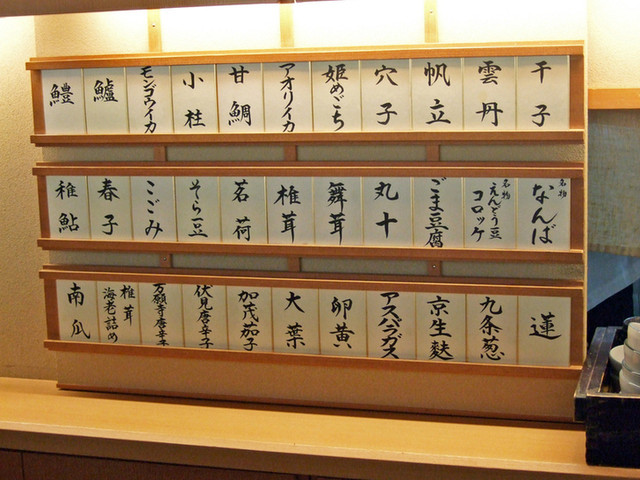 千子
雲丹
帆立
穴子
姫めごち
アオリイカ
甘鯛
小柱
モンゴウイカ
鱸
鱧
名物 なんば
名物 えんどう豆コロッケ
ごま豆腐
丸十
舞茸
椎茸
茗荷
そら豆
こごみ
春子
稚鮎
蓮
九条葱
京生麩
アスパラガス
卵黄
大葉
加茂茄子
伏見唐辛子
万願寺唐辛子
椎茸海老詰め
南瓜